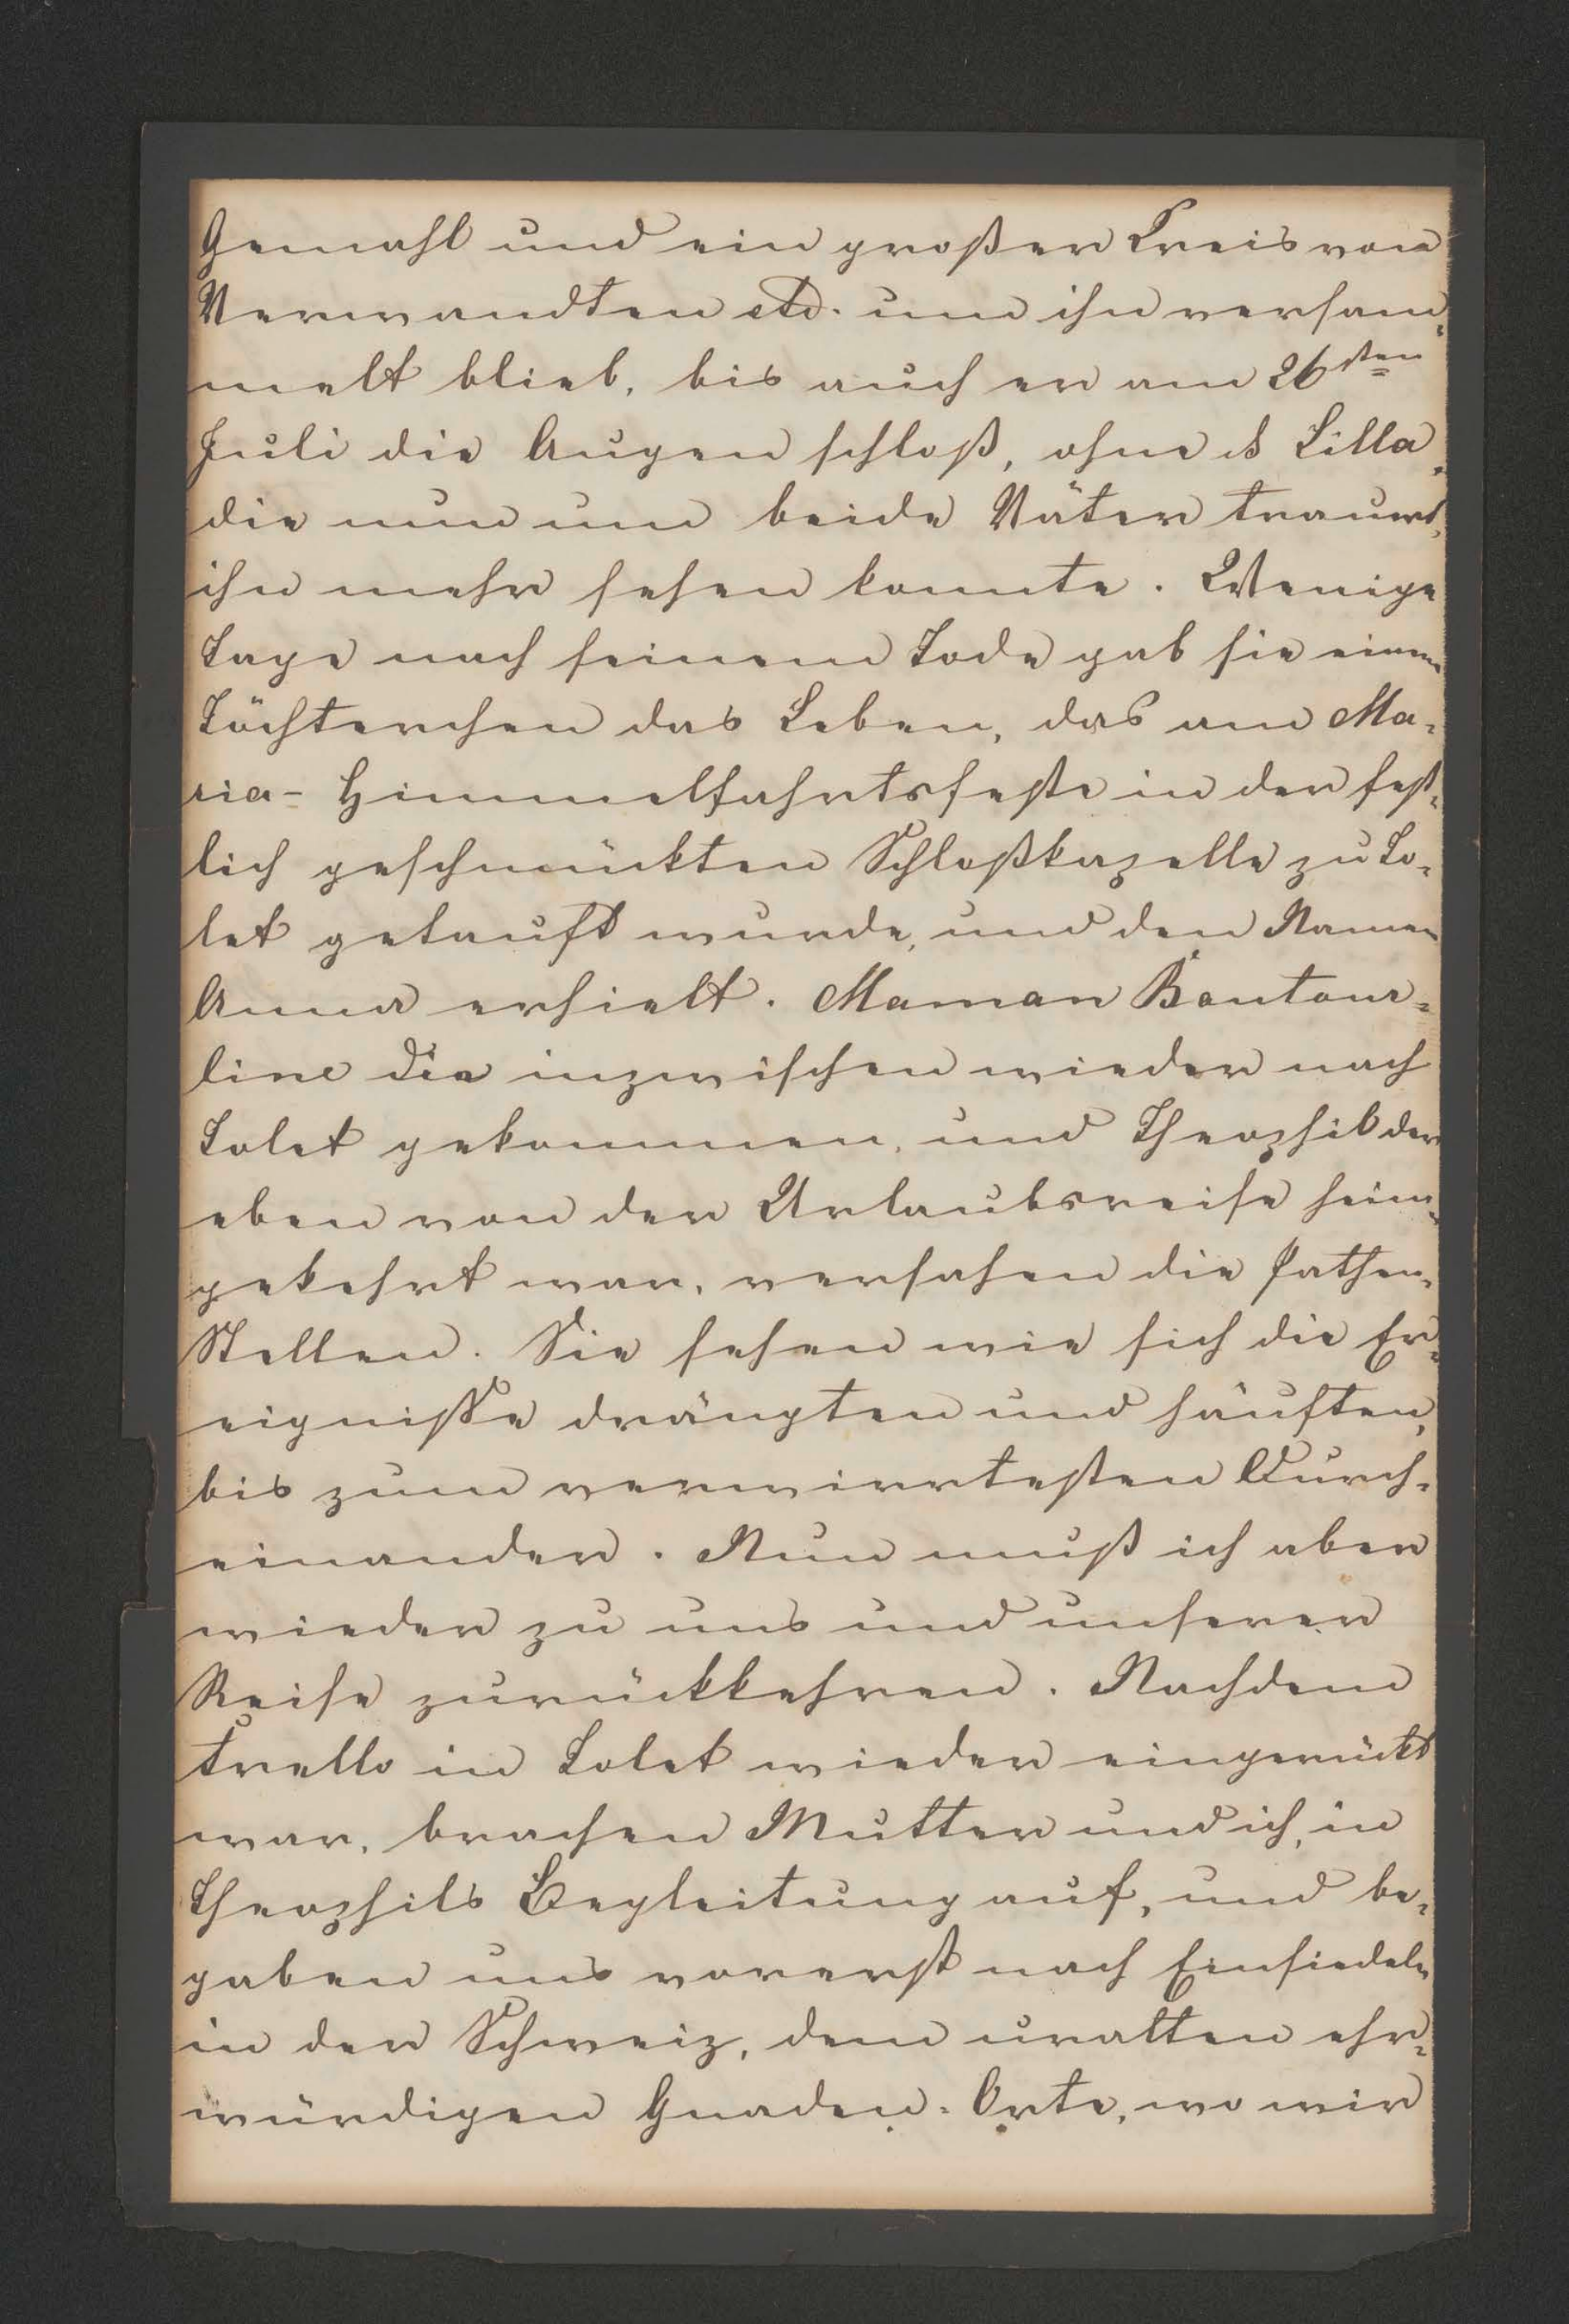 Gemahl und ein großer Kreis von
Verwandten etc. um ihn versam-
melt blieb, bis auch er am 26sten
Juli die Augen schloß, ohne daß Lilla,
die nun um beide Väter trauert,
ihn mehr sehen konnte. Wenige
Tage nach seinem Tode gab sie einem
Töchterchen das Leben, das am Ma-
ria-Himmelfahrtsfeste in der fest-
lich geschmückten Schloßkapelle zu To-
let getauft wurde, und den Namen
Anna erhielt. Maman Boutour-
line die inzwischen wieder nach
Tolet gekommen, und Theophil der
eben von der Urlaubsreise heim-
gekehrt war, versahen die Pathen-
Stellen. Sie sehen wie sich die Er-
eigniße drängten und häuften,
bis zum verwirrtesten Durch-
einander. Nun muß ich aber
wieder zu uns und unserer
Reise zurückkehren. Nachdem
Trello in Tolet wieder eingerückt
war, brachen Mutter und ich, in
Theophils Begleitung auf, und be-
gaben uns vorerst nach Einsiedeln
in der Schweiz, dem uralten ehr-
würdigen Gnaden-Orte, wo wir